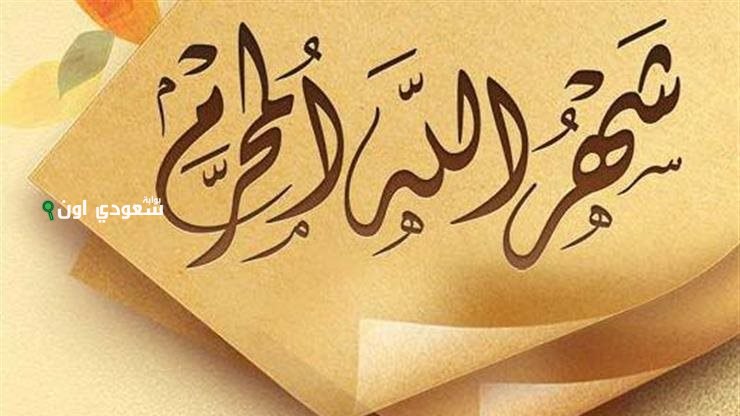 شهر الله المحرم
بوابة
سعودي اون